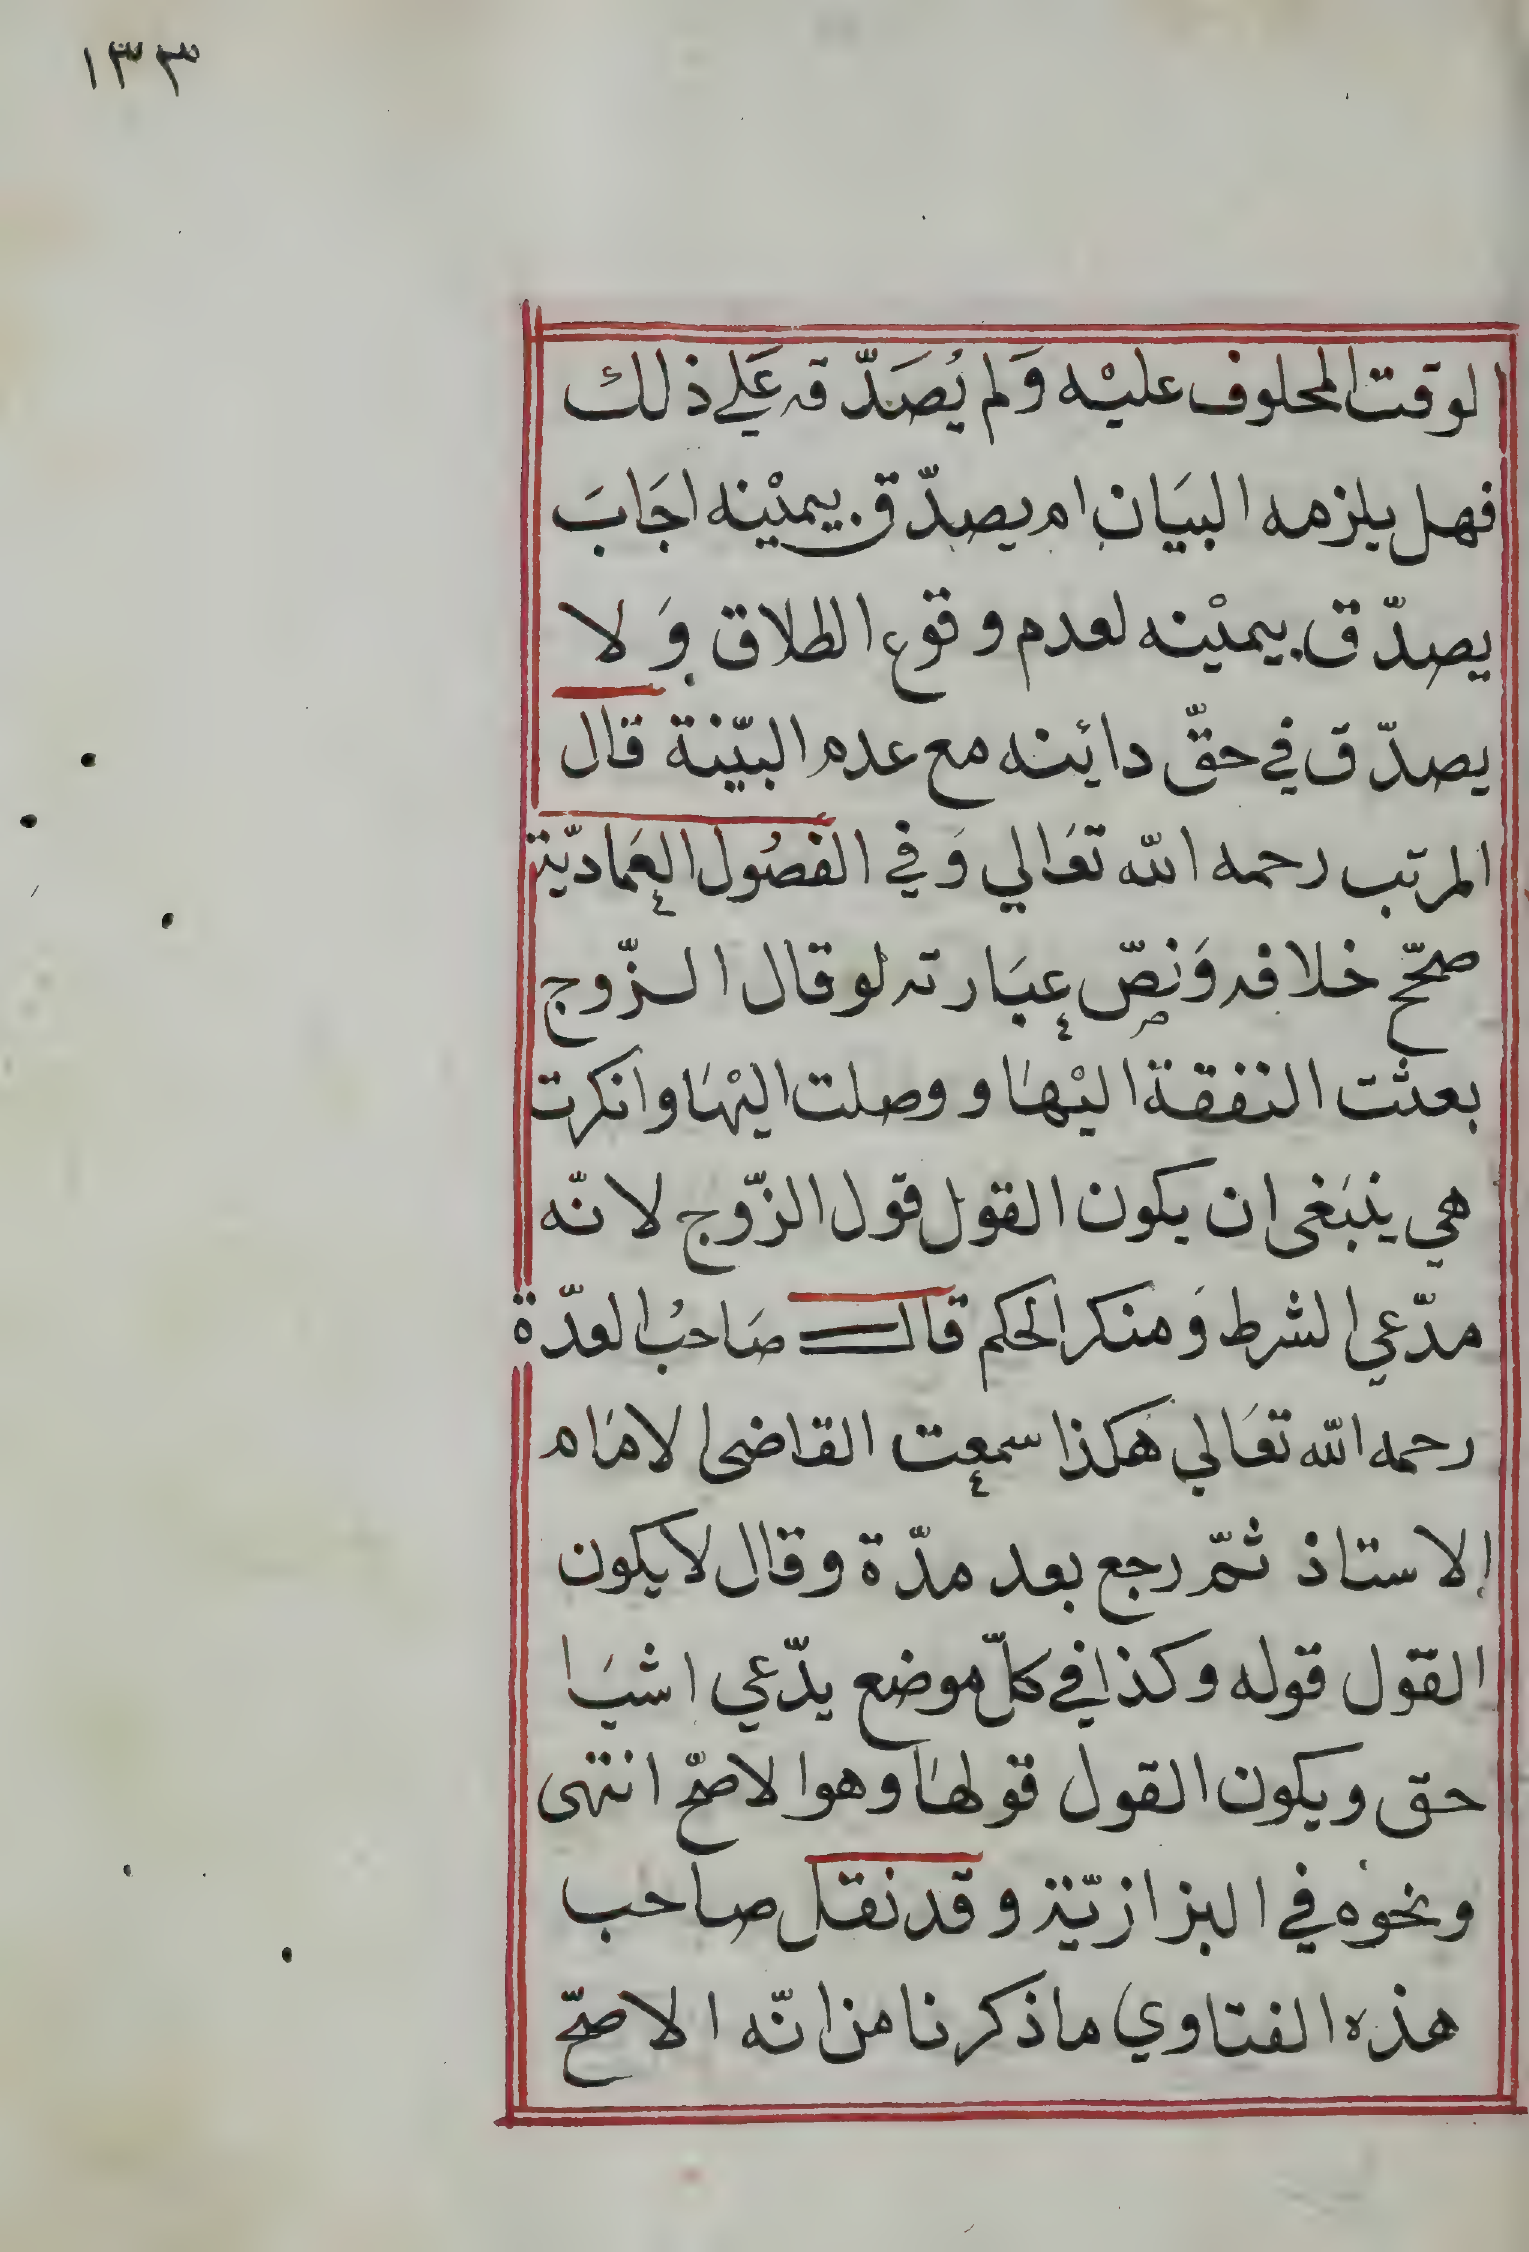 ١٣٣
الوقت المحلوف عليْه وَلم يُصَدّقه عَلي ذلك
فهل يلزمه البيَان ام يصدّق بيميْنه اجَابَ
يصدّق بيميْنه لعدم وقوع الطلاق وَلا
يصدّق في حقّ دائنه مع عدم البيّنة قال
المرتب رحمه الله تعَالي وَفي الفصُول العمَاديّة
صحّح خلافه وَنصّ عبَارته لو قال الزّوج
بعثت النفقة اليْهَا ووصلت اليْهَا وانكرت
هي ينبَغى ان يكون القول قول الزّوج لانّه
مدّعي الشرط وَمنكر الحكم قال صَاحبُ العدّة
رحمه الله تعَالي هَكذا سمعت القاضى الامَام
الاستاذ ثمّ رجع بعد مدّة وقال لا يكون
القول قوله وكذا في كلّ موضع يدّعي اشيَا
حق ويكون القول قولهَا وهو الاصحّ انتهى
ونحوه في البزازيّة وقد نقل صاحب
هذه الفتاوي ما ذكرنا من انّه الاصحّ